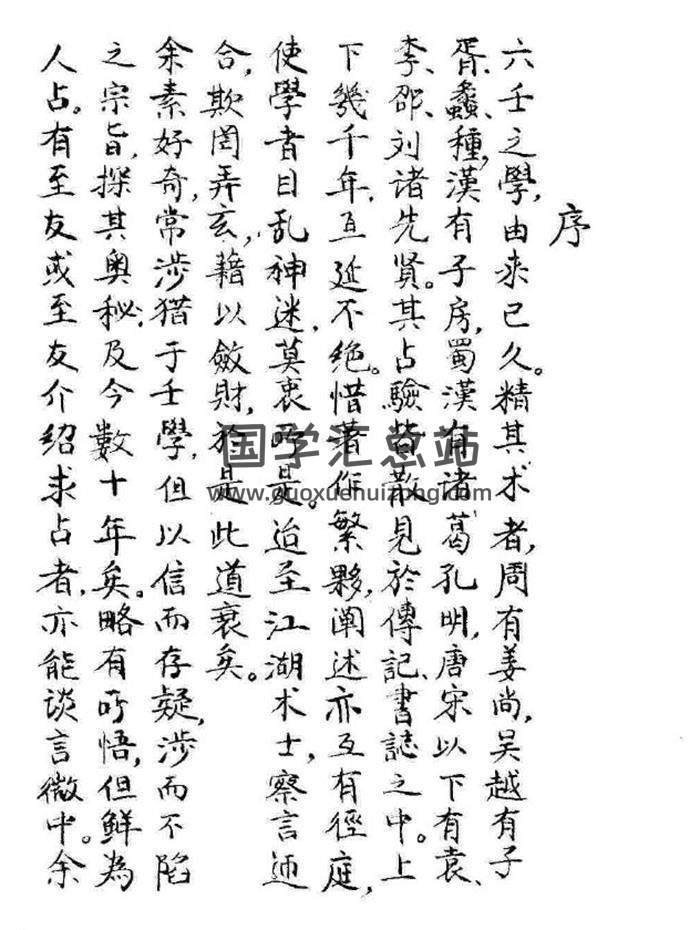 序
六壬之學，由来已久。精其术者，周有姜尚，吴越有子
胥、蠡、種，漢有子房，蜀漢有诸葛孔明，唐宋以下有袁、
李、邵、刘诸先贤。其占驗皆散見於傳記、書誌之中。上
下幾千年，亙延不绝。惜著作繁夥，阐述亦互有徑庭，
使學者目乱神迷，莫衷所是。迨至江湖术士，察言迎
合，欺罔弄玄，藉以斂財，於是此道衰矣。
余素好奇，常涉猎于壬學，但以信而存疑，涉而不陷
之宗旨，探其奥秘，及今數十年矣。略有所悟，但鲜為
人占。有至友或至友介绍求占者，亦能谈言微中。余
国学汇总站
www.guoxuehuizong.com